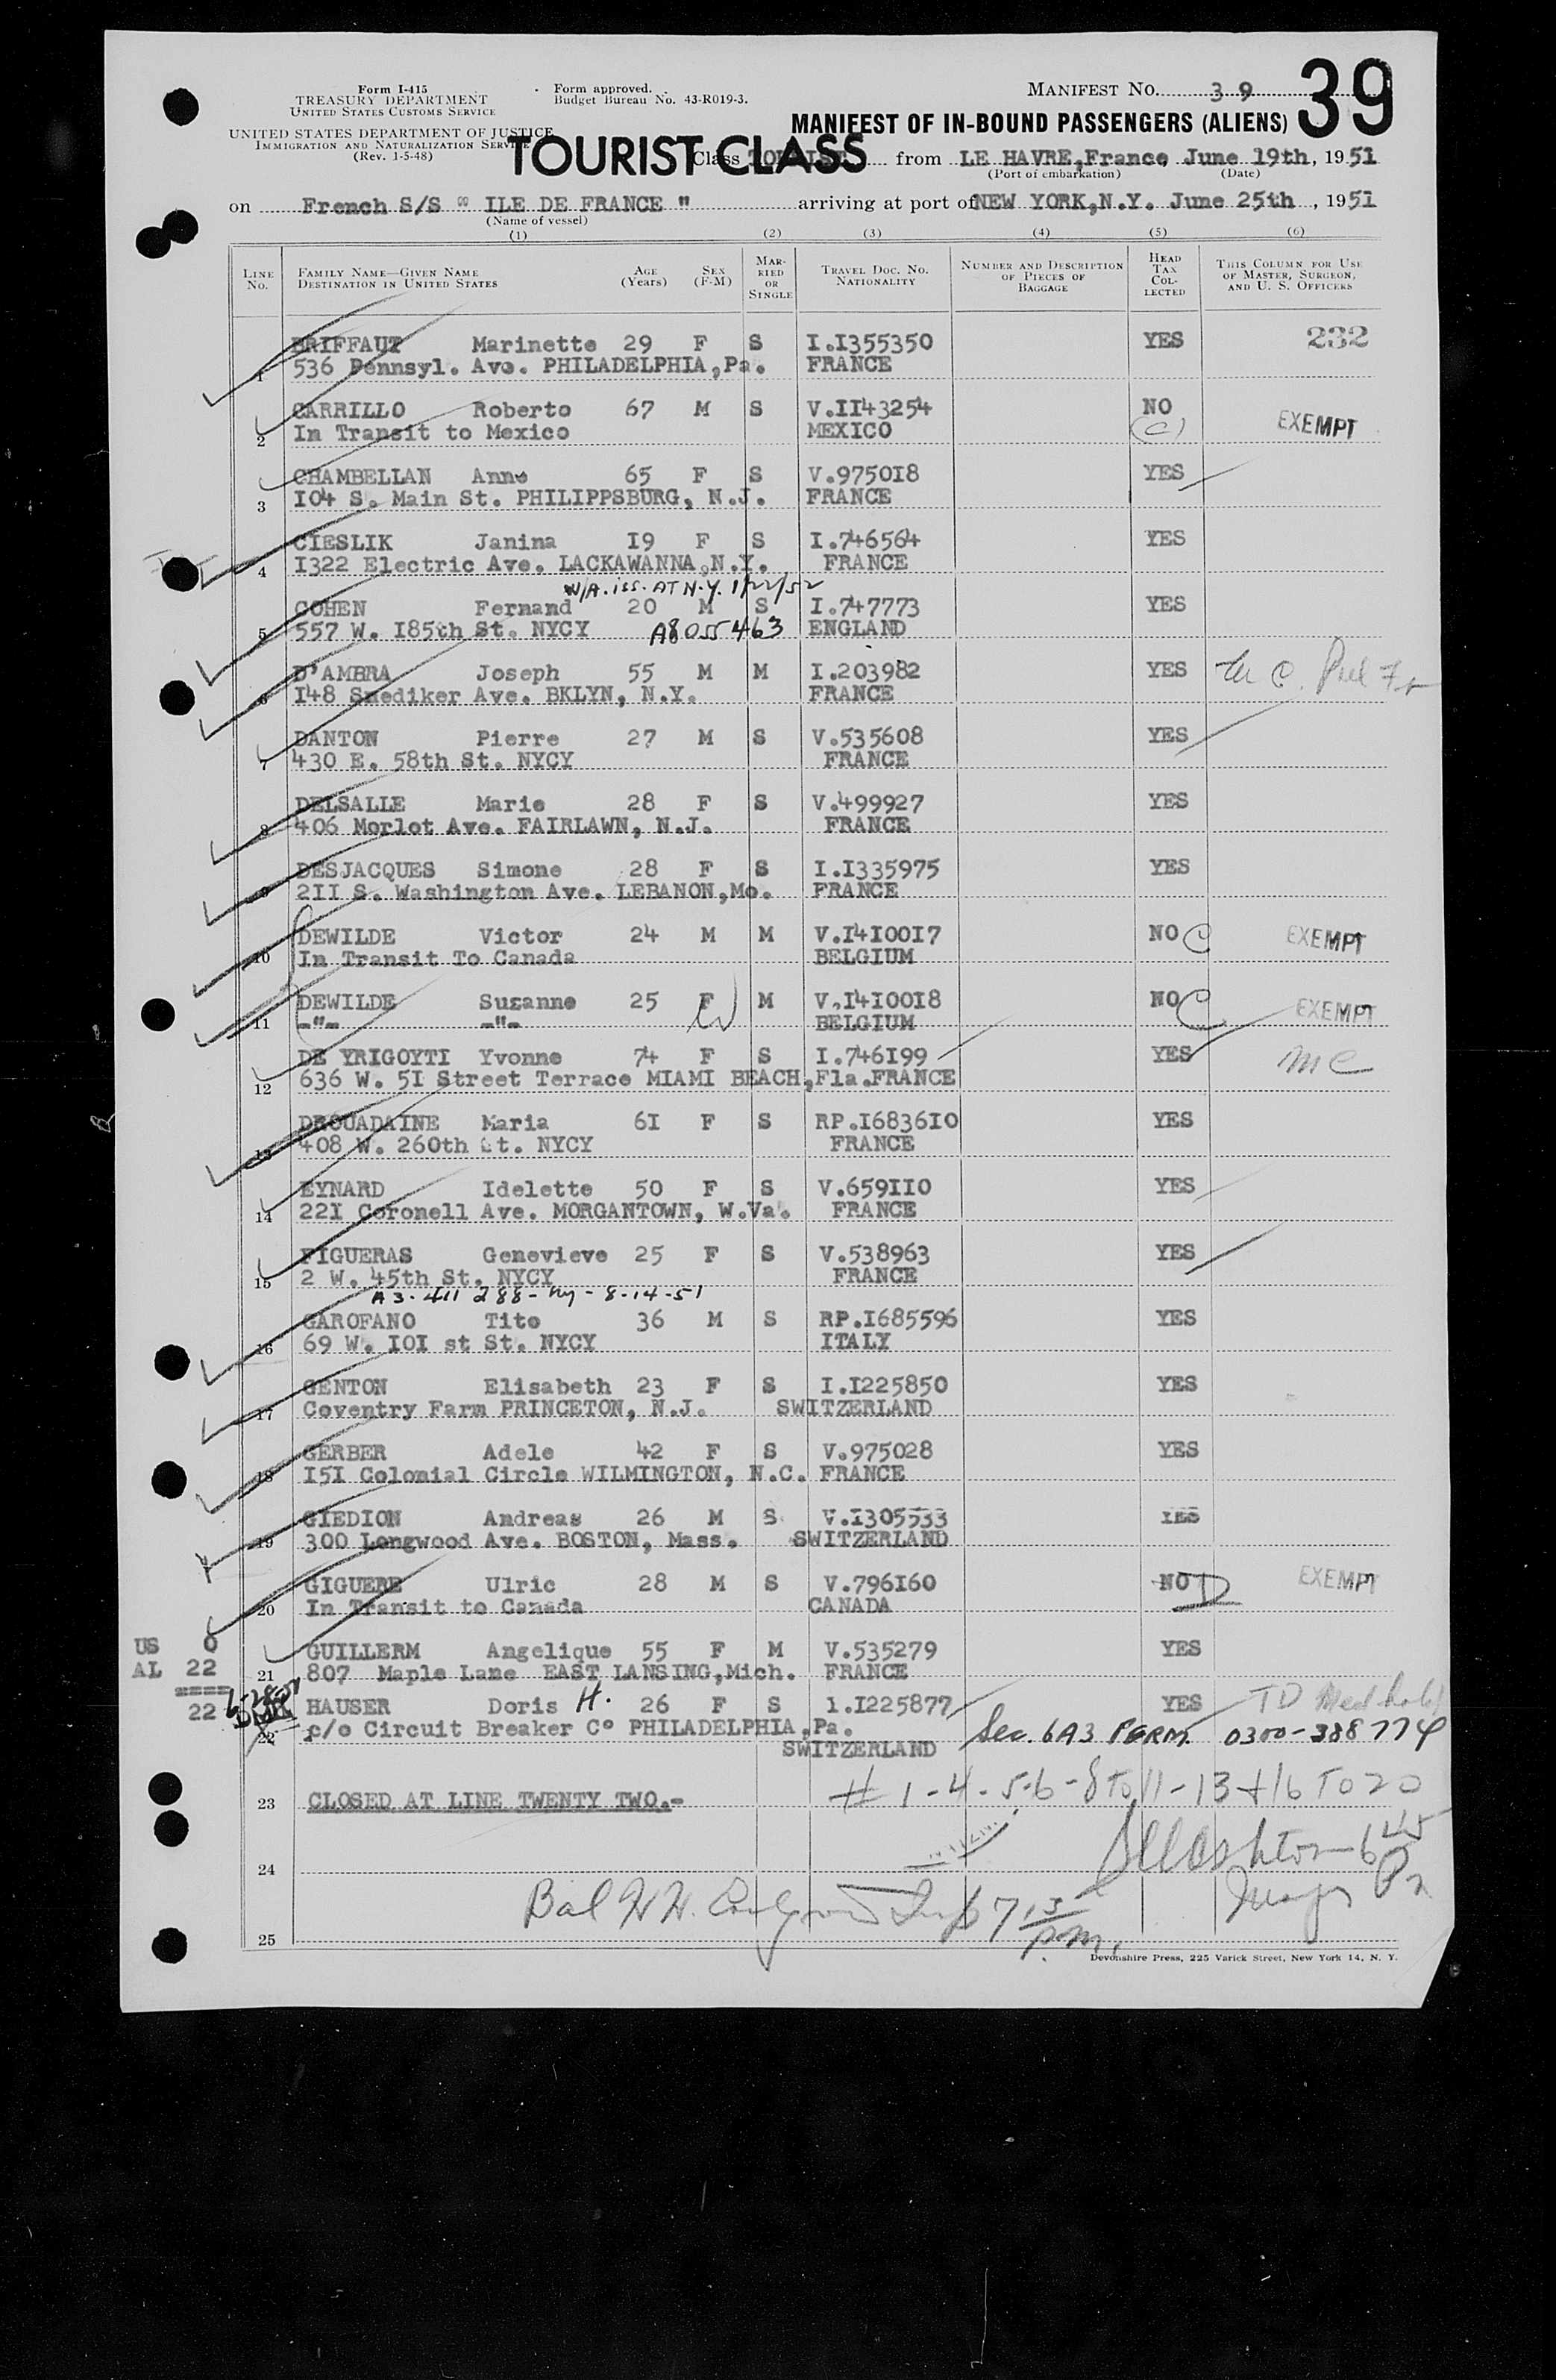 Form I-415
TREASURY DEPARTMENT
UNITED STATES CUSTOMS SERVICE
UNITED STATES DEPARTMENT OF JUSTICE
IMMIGRATION AND NATURALIZATION SERVICE
(Rev. 1-5-48)
Form approved.
Budget Bureau No. 43-R019-3.
MANIFEST NO. 39
39
MANIFEST OF IN-BOUND PASSENGERS (ALIENS)
TOURIST CLASS
Class TOURIST from LE HAVRE,France, June 19th, 1951
(Port of embarkation) (Date)
on French S/S " ILE DE FRANCE " arriving at port of NEW YORK,N.Y. June 25th, 1951
(Name of vessel)
(1) (2) (3) (4) (5) (6)
LINE No. FAMILY NAME—GIVEN NAME DESTINATION IN UNITED STATES AGE (Years) SEX (F-M) MARRIED OR SINGLE TRAVEL DOC. NO. NATIONALITY NUMBER AND DESCRIPTION OF PIECES OF BAGGAGE HEAD TAX COLLECTED THIS COLUMN FOR USE OF MASTER, SURGEON, AND U. S. OFFICERS
BRIFFAUT Marinette 29 F S I.I355350 YES 232
1 536 Pennsyl. Ave. PHILADELPHIA,Pa. FRANCE
CARRILLO Roberto 67 M S V.II43254 NO
2 In Transit to Mexico MEXICO (C) EXEMPT
CHAMBELLAN Anne 65 F S V.975018 YES
3 I04 S. Main St. PHILIPPSBURG, N.J. FRANCE
CIESLIK Janina I9 F S I.746564 YES
4 I322 Electric Ave. LACKAWANNA,N.Y. FRANCE
W/A. iss. AT N.Y. 1/22/52
COHEN Fernand 20 M S I.747773 YES
5 557 W. I85th St. NYCY A8055463 ENGLAND
D'AMBRA Joseph 55 M M I.203982 YES
6 I48 Snediker Ave. BKLYN, N.Y. FRANCE
DANTON Pierre 27 M S V.535608 YES
7 430 E. 58th St. NYCY FRANCE
DELSALLE Marie 28 F S V.499927 YES
8 406 Morlot Ave. FAIRLAWN, N.J. FRANCE
DESJACQUES Simone 28 F S I.I335975 YES
9 2II S. Washington Ave. LEBANON,Mo. FRANCE
DEWILDE Victor 24 M M V.I4I00I7 NO C EXEMPT
10 In Transit To Canada BELGIUM
DEWILDE Suzanne 25 F M V.I4I00I8 NO C EXEMPT
11 -"- -"- BELGIUM
DE YRIGOYTI Yvonne 74 F S I.746I99 YES mc
12 636 W. 5I Street Terrace MIAMI BEACH,Fla.FRANCE
DROUADAINE Maria 6I F S RP.I6836I0 YES
13 408 W. 260th St. NYCY FRANCE
EYNARD Idelette 50 F S V.659II0 YES
14 22I Coronell Ave. MORGANTOWN, W.Va. FRANCE
FIGUERAS Genevieve 25 F S V.538963 YES
15 2 W. 45th St. NYCY FRANCE
A3-411 288- Ny - 8-14-51
GAROFANO Tito 36 M S RP.I685596 YES
16 69 W. IOI st St. NYCY ITALY
GENTON Elisabeth 23 F S I.I225850 YES
17 Coventry Farm PRINCETON, N.J. SWITZERLAND
GERBER Adele 42 F S V.975028 YES
18 I5I Colonial Circle WILMINGTON, N.C. FRANCE
GIEDION Andreas 26 M S V.I305533 YES
19 300 Longwood Ave. BOSTON, Mass. SWITZERLAND
GIGUERE Ulric 28 M S V.796I60 NO D EXEMPT
20 In Transit to Canada CANADA
US 0
AL 22
====
22
GUILLERM Angelique 55 F M V.535279 YES
21 807 Maple Lane EAST LANSING,Mich. FRANCE
HAUSER Doris H. 26 F S 1.I225877 YES TD Med hold
22 c/o Circuit Breaker C° PHILADELPHIA,Pa. Sec. 6A3 PERM. 0300-388774
SWITZERLAND
# 1-4-5-6-8 TO 11-13 + 16 TO 20
23 CLOSED AT LINE TWENTY TWO.-
24
Bal
7 15 P.M.
25
Devonshire Press, 225 Varick Street, New York 14, N. Y.